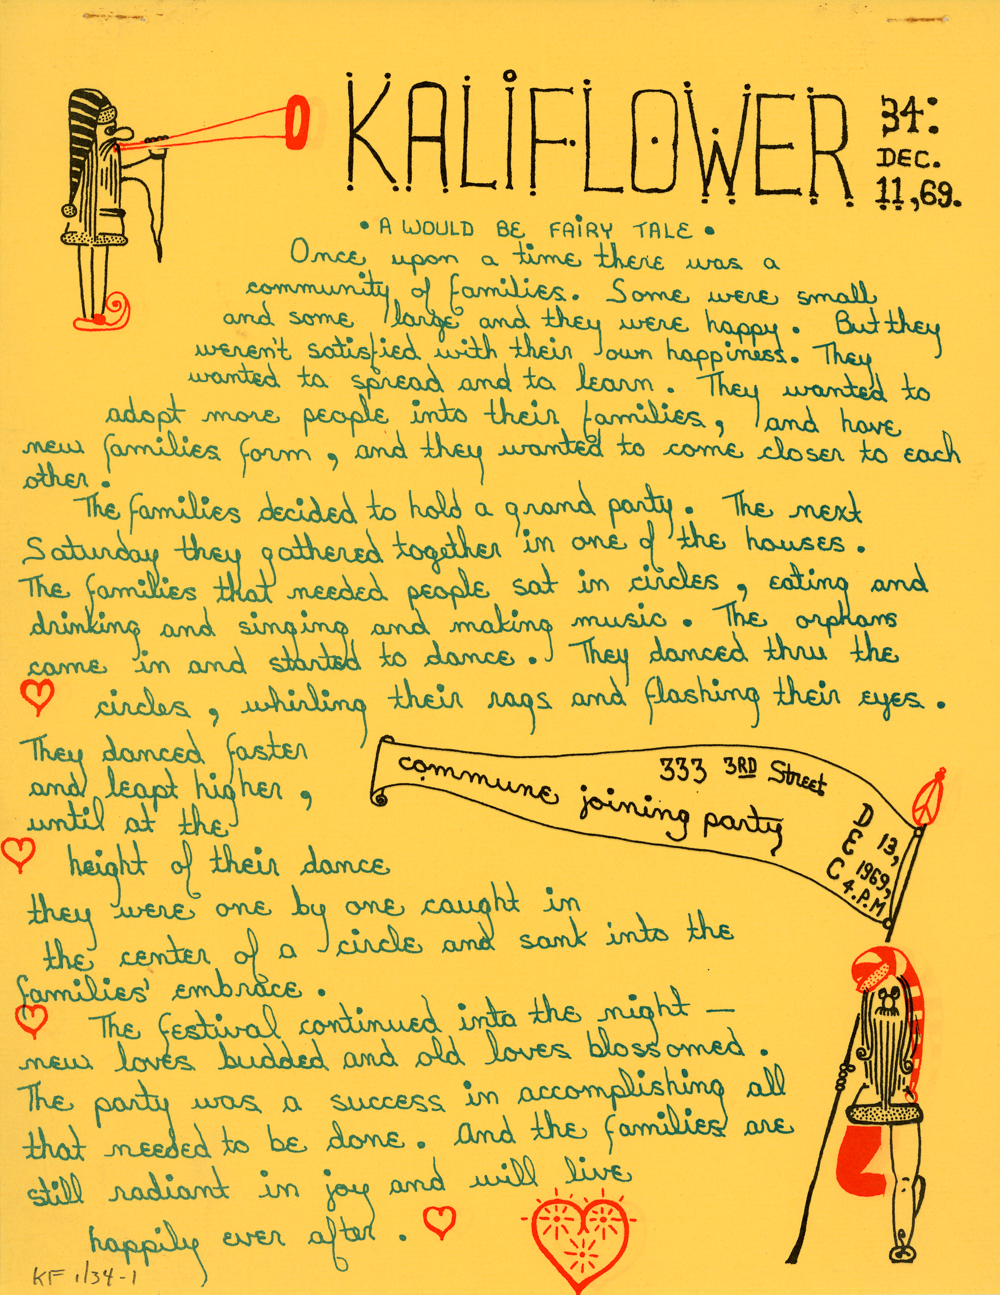 KALIFLOWER
34:
DEC.
11,69.
• A WOULD BE FAIRY TALE •
Once upon a time there was a
community of families. Some were small
and some large and they were happy. But they
weren't satisfied with their own happiness. They
wanted to spread and to learn. They wanted to
adopt more people into their families, and have
new families form, and they wanted to come closer to each
other.
The families decided to hold a grand party. The next
Saturday they gathered together in one of the houses.
The families that needed people sat in circles, eating and
drinking and singing and making music. The orphans
came in and started to dance. They danced thru the
circles, whirling their rags and flashing their eyes.
They danced faster
and leapt higher,
until at the
height of their dance
they were one by one caught in
the center of a circle and sank into the
families' embrace.
The festival continued into the night —
new loves budded and old loves blossomed.
The party was a success in accomplishing all
that needed to be done. And the families are
still radiant in joy and will live
happily ever after.
commune joining party
333 3RD Street
DEC 13,
1969,
4.P.M
KF 1/34-1